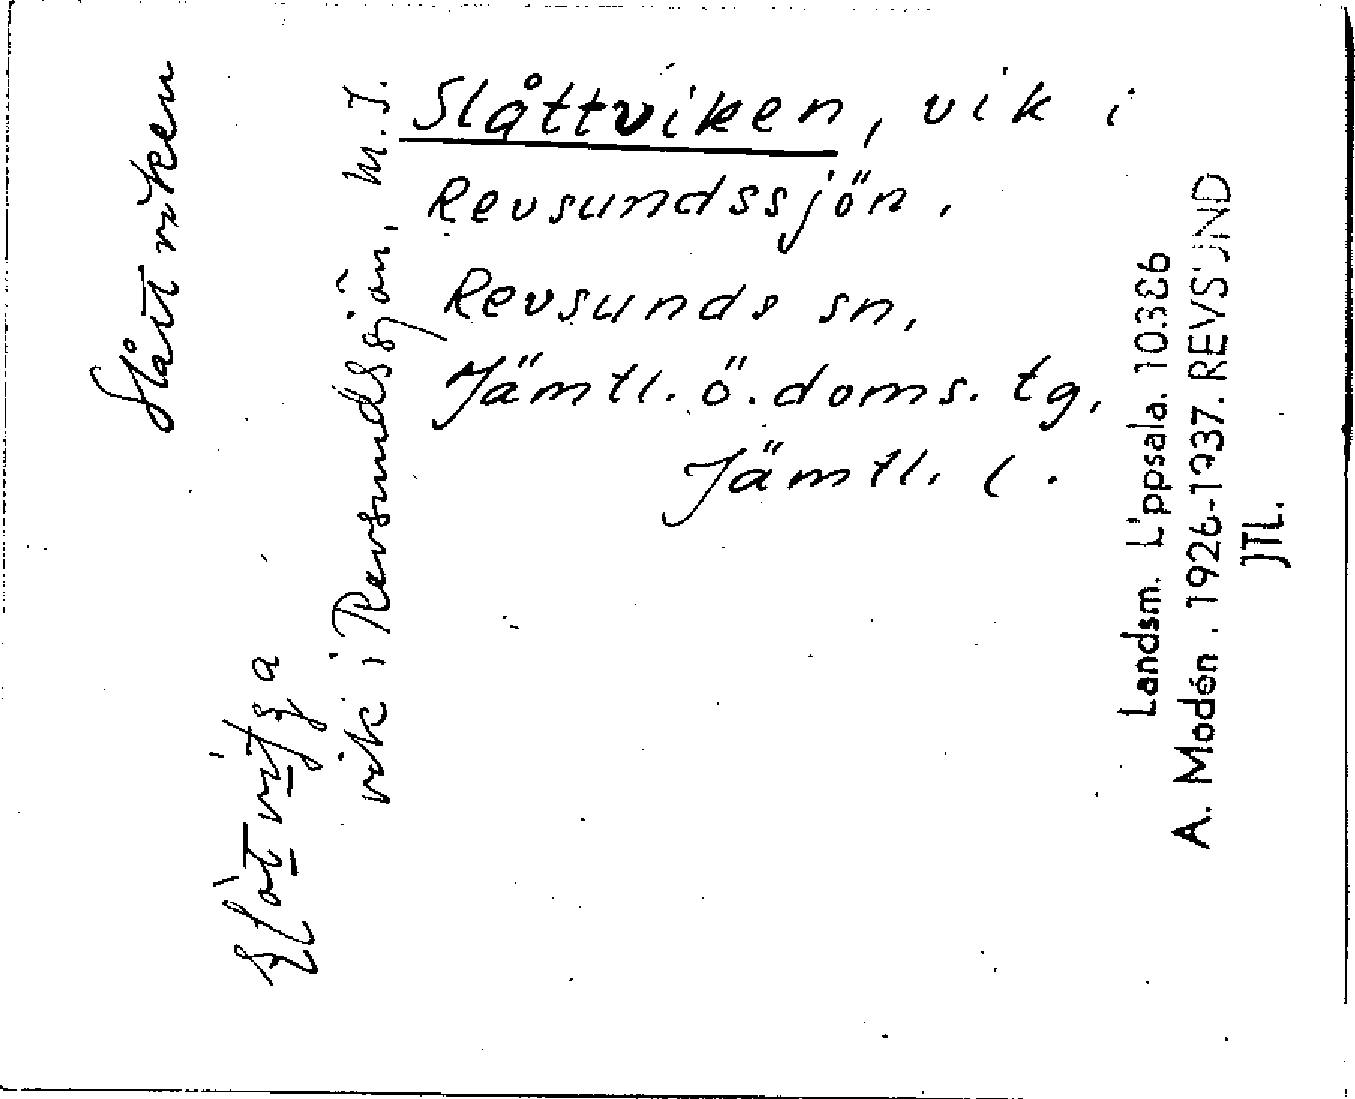 Slåttviken, vik i
Revsundssjön.
Revsunds sn,
Jämtl. ö. doms. tg,
Jämtl. l.
Slåttviken
vik i Revsundssjön, M.J.
Landsm. Uppsala. 10386
A. Modén. 1926-1937. REVSUND
JTL.